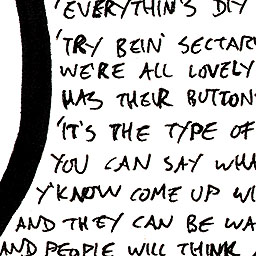 'EVERYTHIN'S DIY
'TRY BEIN' SECTAR
WE'RE ALL LOVELY
HAS THEIR BUTTON
'IT'S THE TYPE OF
YOU CAN SAY WHA
Y'KNOW COME UP WI
AND THEY CAN BE WA
AND PEOPLE WILL THINK